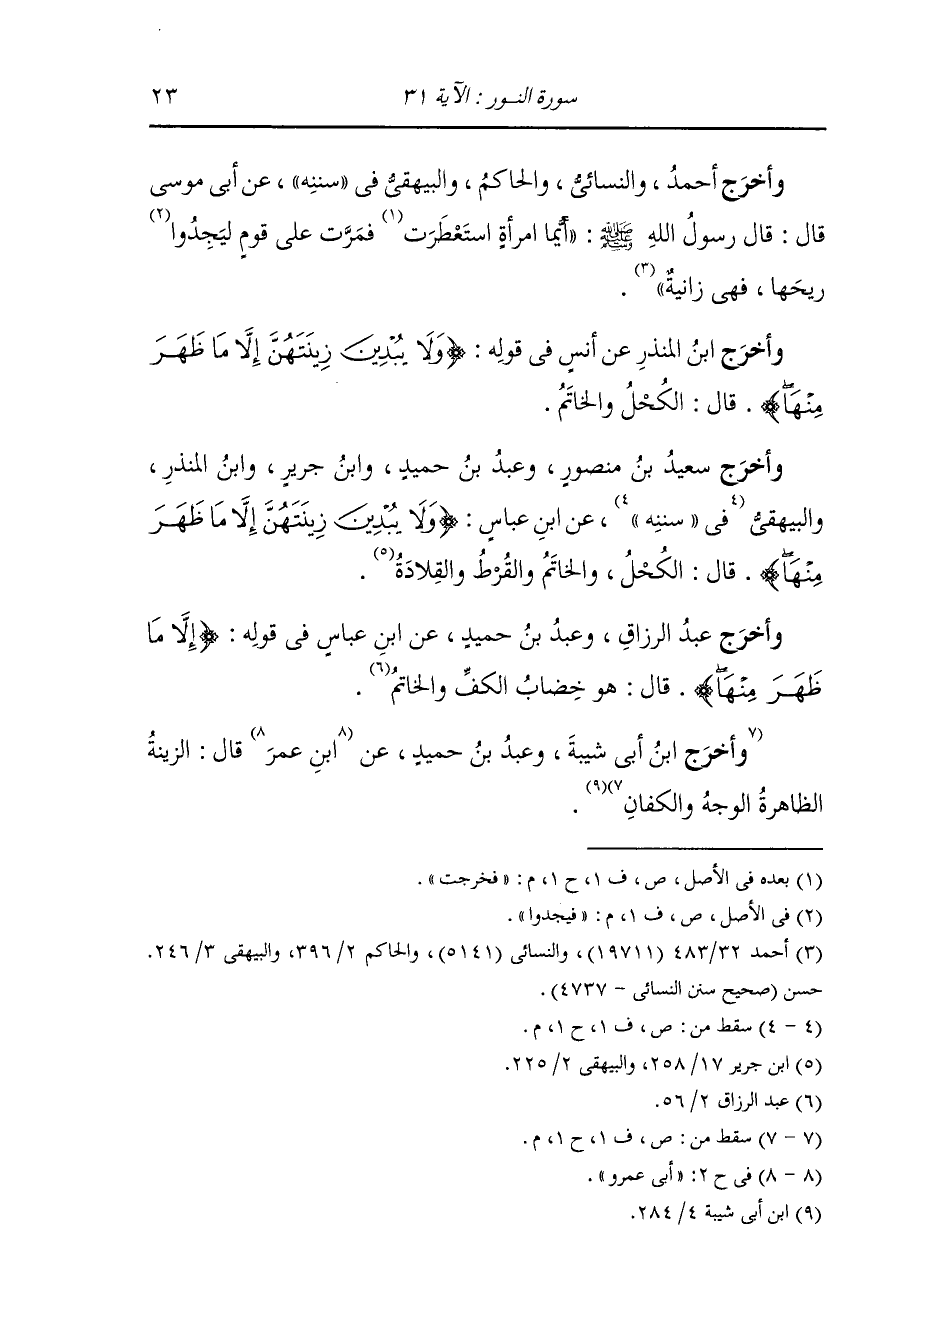 سورة النــور : الآية ٣١ ٢٣
وأخرَج أحمدُ ، والنسائىُّ ، والحاكمُ ، والبيهقىُّ فى «سننِه» ، عن أبى موسى
قال : قال رسولُ اللهِ ﷺ : «أيُّما امرأةٍ استَعْطَرَت(١) فمَرَّت على قومٍ ليَجِدُوا(٢)
ريحَها ، فهى زانيةٌ»(٣) .
وأخرَج ابنُ المنذرِ عن أنسٍ فى قولِه : ﴿وَلَا يُبْدِينَ زِينَتَهُنَّ إِلَّا مَا ظَهَـرَ
مِنْهَاۖ﴾ . قال : الكُحْلُ والخاتَمُ .
وأخرَج سعيدُ بنُ منصورٍ ، وعبدُ بنُ حميدٍ ، وابنُ جريرٍ ، وابنُ المنذرِ ،
والبيهقىُّ (٤فى « سننِه »٤) ، عن ابنِ عباسٍ : ﴿وَلَا يُبْدِينَ زِينَتَهُنَّ إِلَّا مَا ظَهَـرَ
مِنْهَاۖ﴾ . قال : الكُحْلُ ، والخاتَمُ والقُرْطُ والقِلادَةُ(٥) .
وأخرَج عبدُ الرزاقِ ، وعبدُ بنُ حميدٍ ، عن ابنِ عباسٍ فى قولِه : ﴿إِلَّا مَا
ظَهَـرَ مِنْهَاۖ﴾ . قال : هو خِضابُ الكفِّ والخاتمُ(٦) .
(٧وأخرَج ابنُ أبى شيبةَ ، وعبدُ بنُ حميدٍ ، عن (٨ابنِ عمرَ٨) قال : الزينةُ
الظاهرةُ الوجهُ والكفانِ٧)(٩) .
(١) بعده فى الأصل ، ص ، ف ١، ح ١، م : « فخرجت » .
(٢) فى الأصل ، ص ، ف ١، م : « فيجدوا» .
(٣) أحمد ٣٢/ ٤٨٣ (١٩٧١١) ، والنسائى (٥١٤١) ، والحاكم ٢/ ٣٩٦، والبيهقى ٣/ ٢٤٦.
حسن (صحيح سنن النسائى – ٤٧٣٧) .
(٤ – ٤) سقط من : ص ، ف ١، ح ١، م .
(٥) ابن جرير ١٧/ ٢٥٨، والبيهقى ٢/ ٢٢٥.
(٦) عبد الرزاق ٢/ ٥٦.
(٧ – ٧) سقط من : ص ، ف ١، ح ١، م .
(٨ – ٨) فى ح ٢: «أبى عمرو» .
(٩) ابن أبى شيبة ٤/ ٢٨٤.